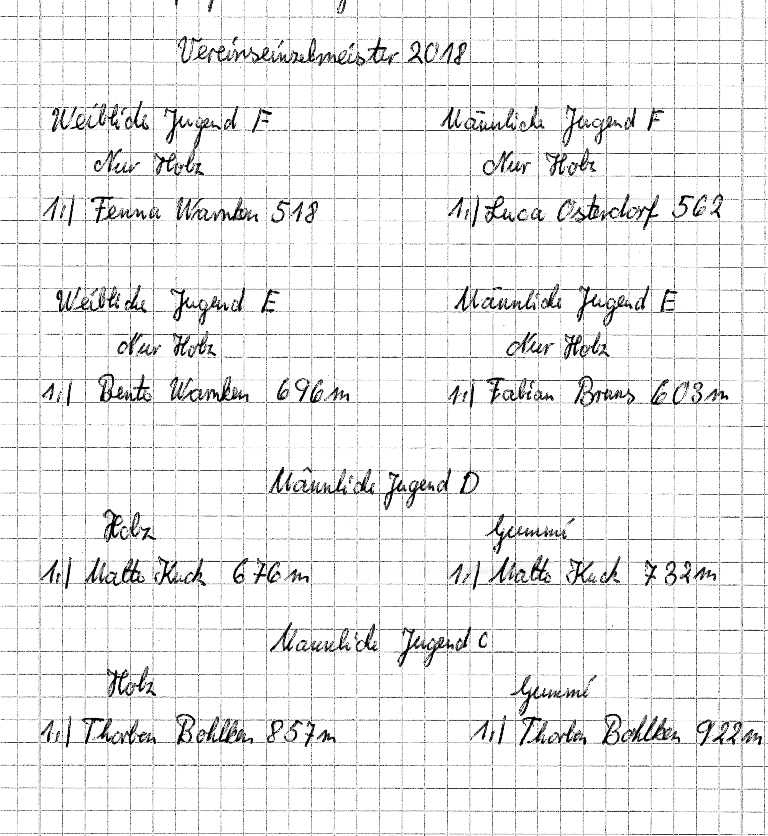 Vereinseinzelmeister 2018
Weibliche Jugend F Männliche Jugend F
Nur Holz Nur Holz
1.) Fenna Warnken 518 1.) Luca Osterdorf 562
Weibliche Jugend E Männliche Jugend E
Nur Holz Nur Holz
1.) Bente Warnken 696m 1.) Fabian Bruns 603m
Männliche Jugend D
Holz Gummi
1.) Malte Kuck 676m 1.) Malte Kuck 732m
Männliche Jugend C
Holz Gummi
1.) Thorben Bohlken 857m 1.) Thorben Bohlken 922m